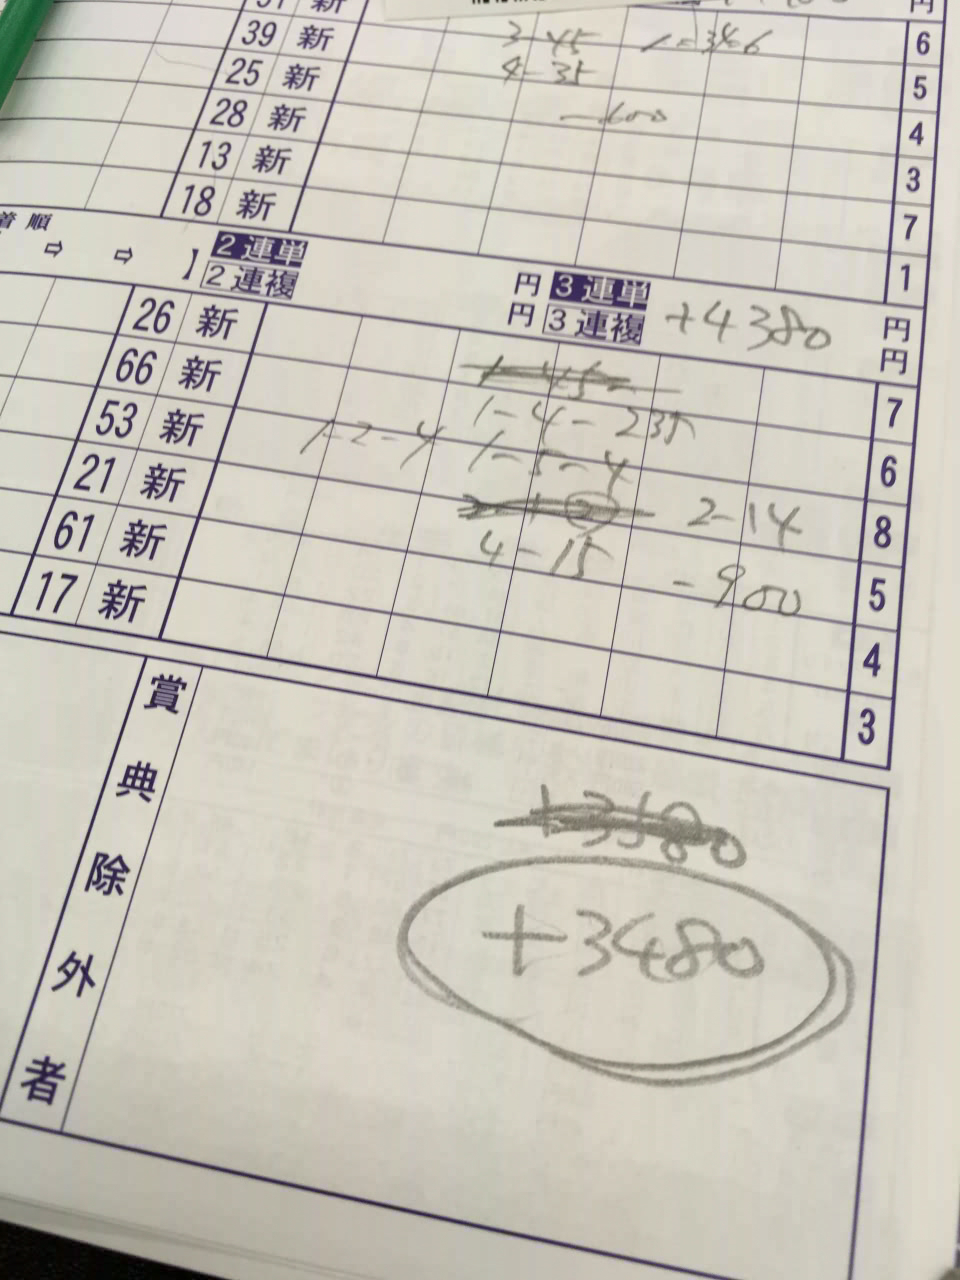 新
39 新 3-45 1-346 6
25 新 4-35 5
28 新 -600 4
13 新 3
18 新 7
1
着順
⇨ ⇨ 】 2連単 円 3連単 円
2連複 円 3連複 +4380 円
26 新
66 新 7
53 新 1-2-4 1-4-235 6
21 新 1-5-4 8
61 新 2-14 5
17 新 4-15 -900 4
3
賞典除外者
+3480